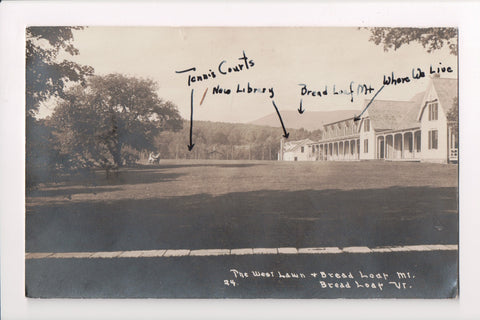 Tennis Courts
New Library
Bread Loaf Mt
Where We Live
The West Lawn & Bread Loaf Mt.
29. Bread Loaf Vt.